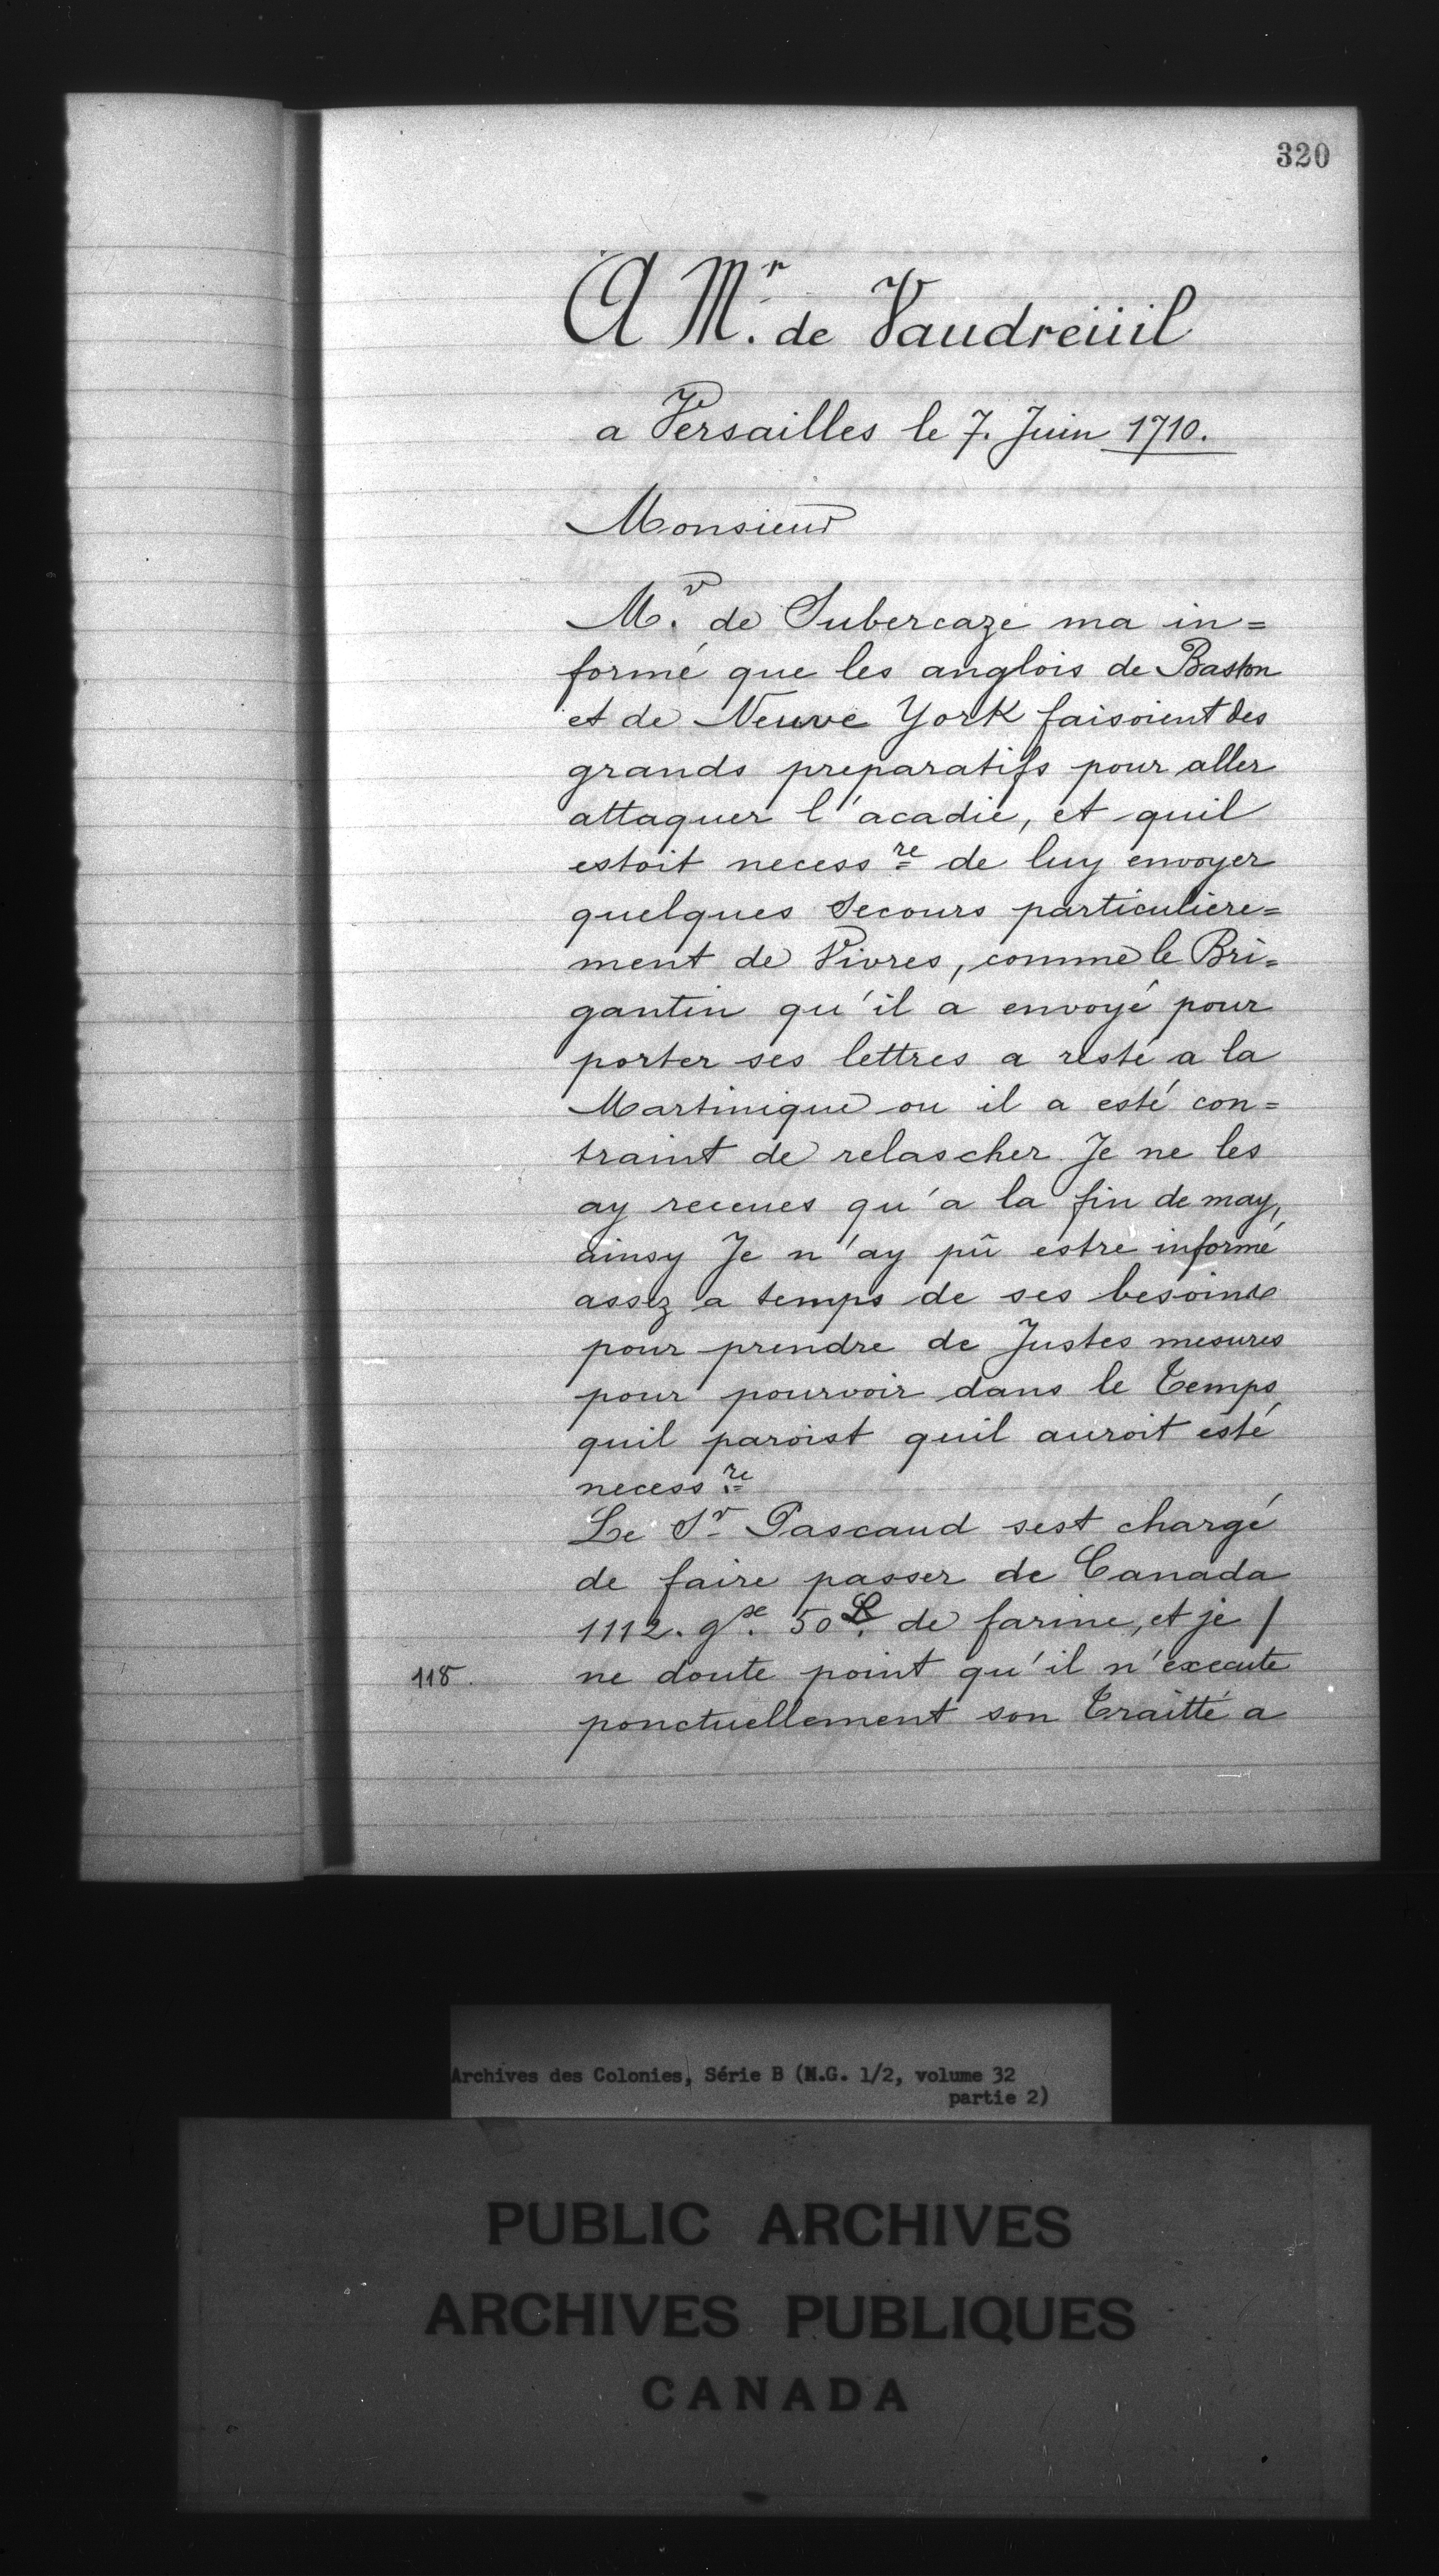 320
A Mr. de Vaudreüil
a Versailles le 7. Juin 1710.
Monsieur
Mr. de Subercaze ma in=
formé que les anglois de Baston
et de Neuve York faisoient des
grands preparatifs pour aller
attaquer l'acadie, et quil
estoit necessre de luy envoyer
quelques Secours particuliere=
ment de Vivres, comme le Bri=
gantin qu'il a envoyé pour
porter ses lettres a resté a la
Martinique ou il a esté con=
traint de relascher Je ne les
ay receues qu'a la fin de may,
ainsy Je n'ay pû estre informé
assez a temps de ses besoins
pour prendre de Justes mesures
pour pourvoir dans le Temps
quil paroist quil auroit esté
necessre
Le Sr Pascaud sest chargé
de faire passer de Canada
1112. qx. 50 L. de farine, et je /
118. ne doute point qu'il n'execute
ponctuellement son Traitté a
Archives des Colonies, Série B (M.G. 1/2, volume 32
partie 2)
PUBLIC ARCHIVES
ARCHIVES PUBLIQUES
CANADA